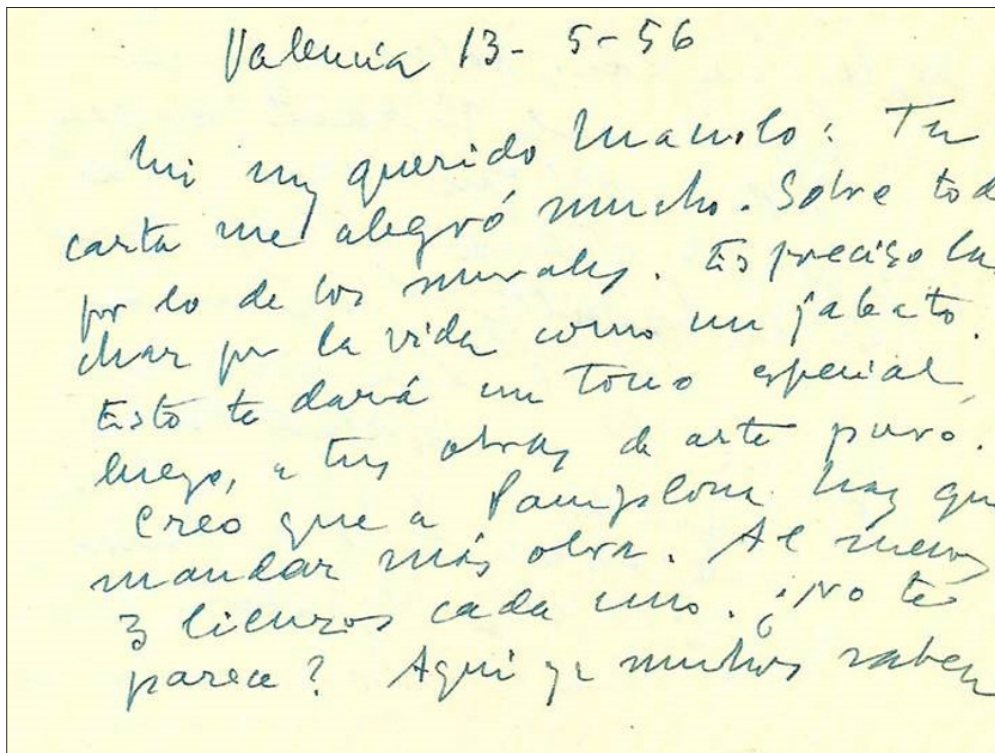 Valencia 13-5-56
Mi muy querido Manolo: Tu
carta me alegró mucho. Sobre tod
por lo de los murales. Es preciso lu
char por la vida como un jabato.
Esto te dará un tono especial,
luego, a tus obras de arte puro.
Creo que a Pamplona hay qu
mandar más obra. Al menos
3 lienzos cada uno. ¿No te
parece? Aqui ya muchos saben